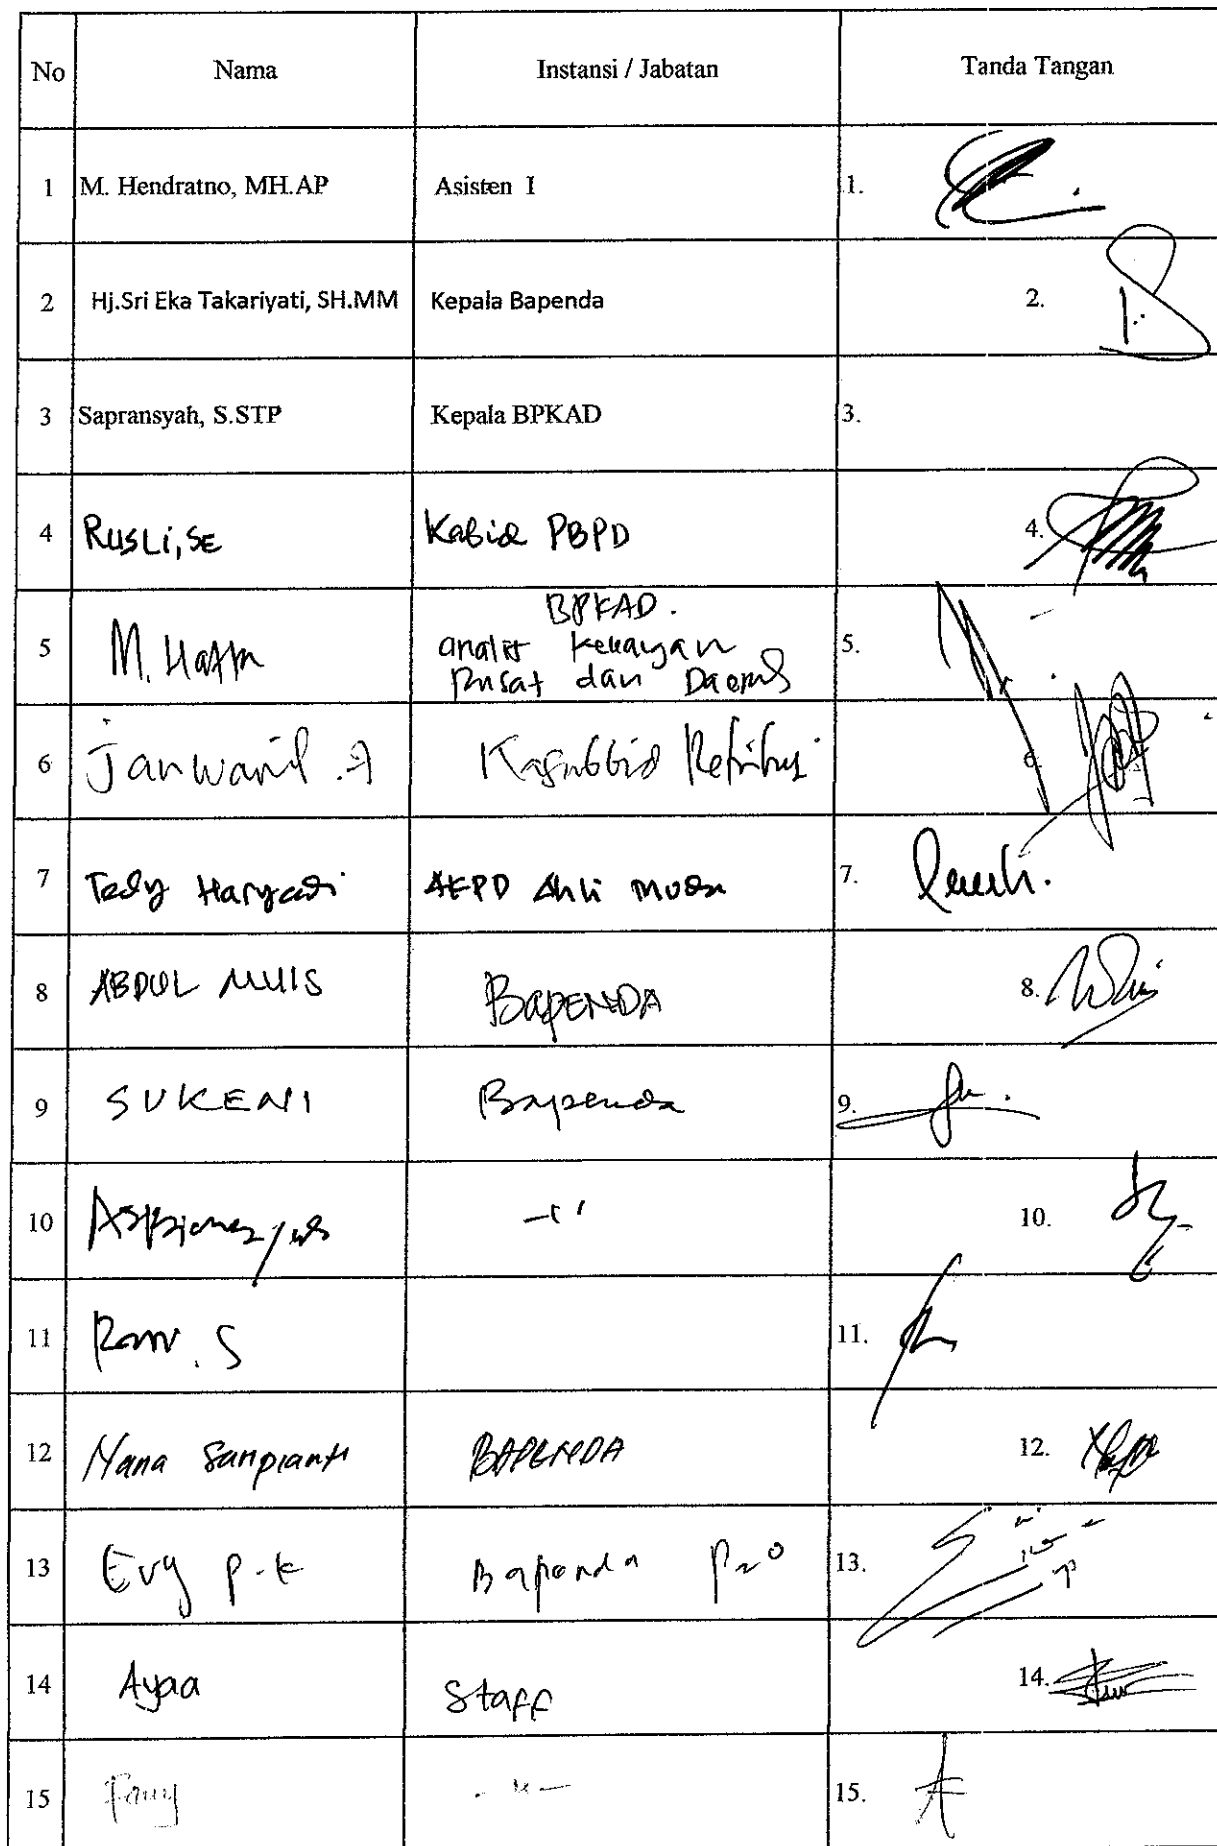 No Nama Instansi / Jabatan Tanda Tangan
1 M. Hendratno, MH.AP Asisten I 1.
2 Hj.Sri Eka Takariyati, SH.MM Kepala Bapenda 2.
3 Sapransyah, S.STP Kepala BPKAD 3.
4 RUSLI, SE Kabid PBPD 4.
BPKAD.
5 M. Hatta analis Kekayaan 5.
Pusat dan Daerah
6 Janwari Kasubbid Retribusi 6.
7 Tedy Haryadi AKPD Ahli Muda 7.
8 ABDUL MUIS BAPENDA 8.
9 SUKENI Bapenda 9.
10 10.
11 S 11.
12 Nana BAPENDA 12.
13 Evy P.K Bapenda 13.
14 Ayaa Staff 14.
15 Fany -"- 15.